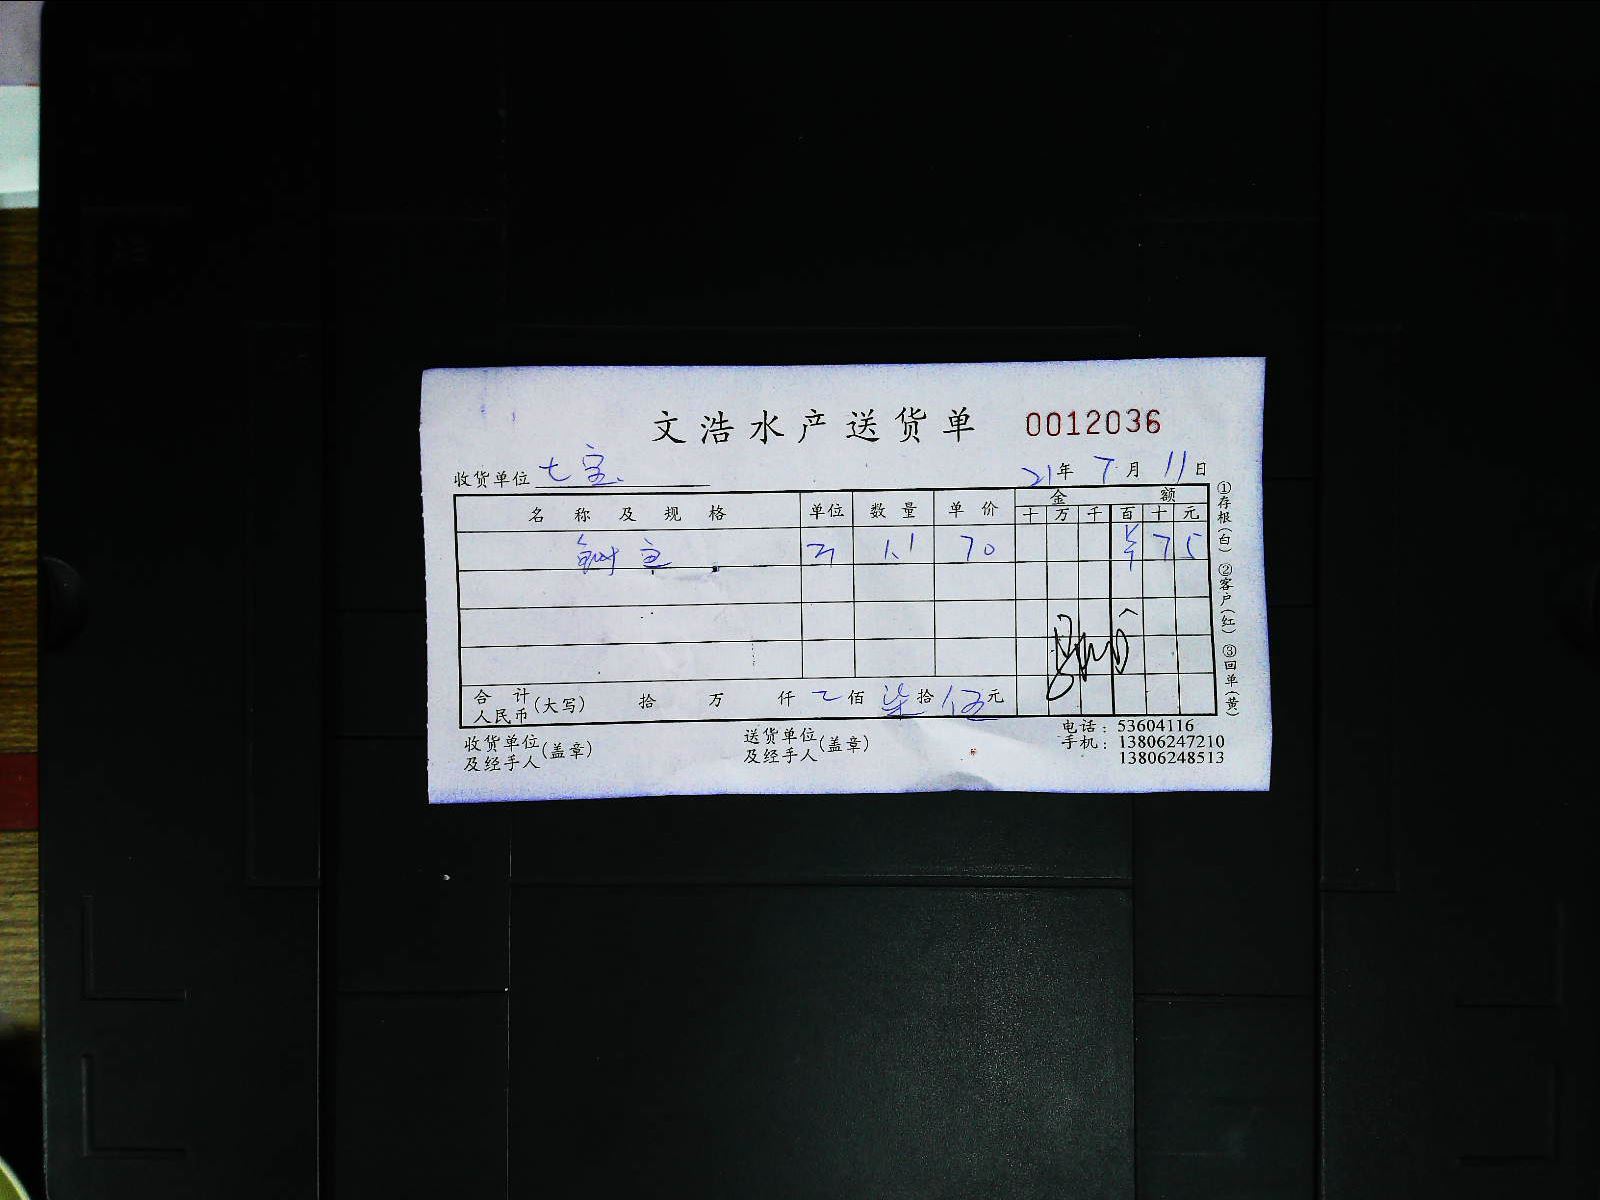 文浩水产送货单 0012036
收货单位 七宝 21年 7月 11日
名称及规格 单位 数量 单价 金额
十 万 千 百 十 元
1.1 70 ¥ 7 5
合计人民币(大写) 拾 万 仟 佰 柒拾 伍元
收货单位及经手人(盖章) 送货单位及经手人(盖章)
电话：53604116
手机：13806247210
13806248513
①存根(白) ②客户(红) ③回单(黄)